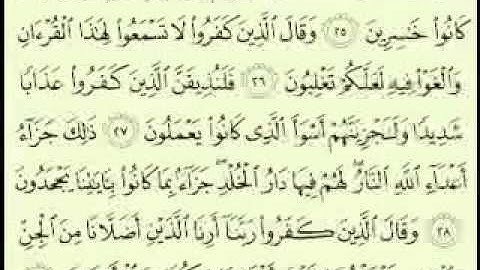 كَانُوا۟ خَـٰسِرِينَ ٢٥ وَقَالَ ٱلَّذِينَ كَفَرُوا۟ لَا تَسْمَعُوا۟ لِهَـٰذَا ٱلْقُرْءَانِ
وَٱلْغَوْا۟ فِيهِ لَعَلَّكُمْ تَغْلِبُونَ ٢٦ فَلَنُذِيقَنَّ ٱلَّذِينَ كَفَرُوا۟ عَذَابًا
شَدِيدًا وَلَنَجْزِيَنَّهُمْ أَسْوَأَ ٱلَّذِى كَانُوا۟ يَعْمَلُونَ ٢٧ ذَٰلِكَ جَزَآءُ
أَعْدَآءِ ٱللَّهِ ٱلنَّارُ ۖ لَهُمْ فِيهَا دَارُ ٱلْخُلْدِ ۖ جَزَآءًۢ بِمَا كَانُوا۟ بِـَٔايَـٰتِنَا يَجْحَدُونَ
٢٨ وَقَالَ ٱلَّذِينَ كَفَرُوا۟ رَبَّنَآ أَرِنَا ٱلَّذَيْنِ أَضَلَّانَا مِنَ ٱلْجِنِّ